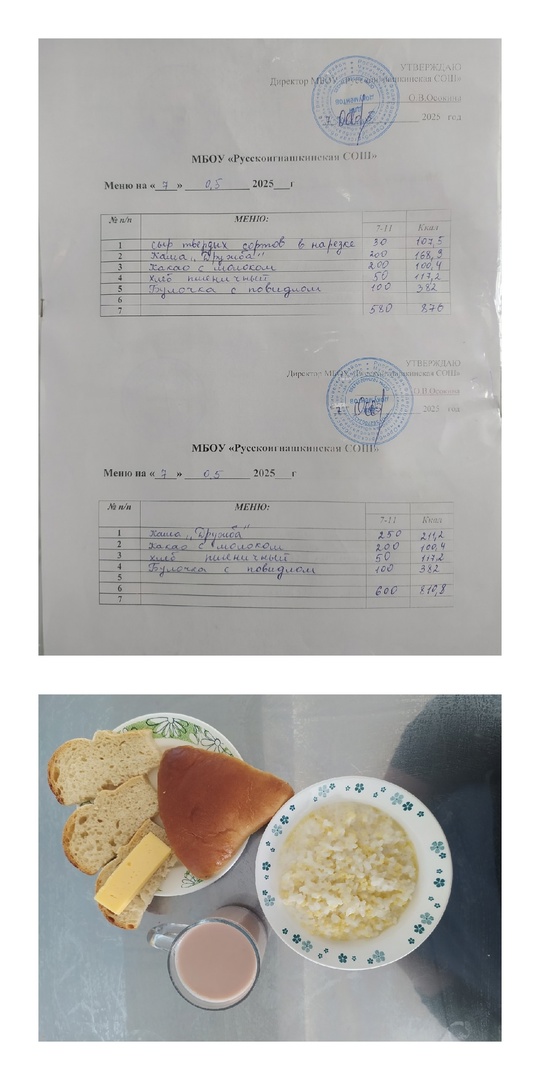 УТВЕРЖДАЮ
Директор МБОУ «Русскоигнашкинская СОШ»
О.В.Осокина
7 2025 год
МБОУ «Русскоигнашкинская СОШ»
Меню на « 7 » 0,5 2025 г
№ п/п МЕНЮ:
7-11 Ккал
1 сыр твердых сортов в нарезке 30 107,5
2 Каша „Дружба" 200 168,9
3 Какао с молоком 200 100,4
4 хлеб пшеничный 50 117,2
5 Булочка с повидлом 100 382
6
7 580 876
УТВЕРЖДАЮ
Директор МБОУ «Русскоигнашкинская СОШ»
О.В.Осокина
7 2025 год
МБОУ «Русскоигнашкинская СОШ»
Меню на « 7 » 0,5 2025 г
№ п/п МЕНЮ:
7-11 Ккал
1 Каша „Дружба" 250 211,2
2 Какао с молоком 200 100,4
3 хлеб пшеничный 50 117,2
4 Булочка с повидлом 100 382
5
6 600 810,8
7